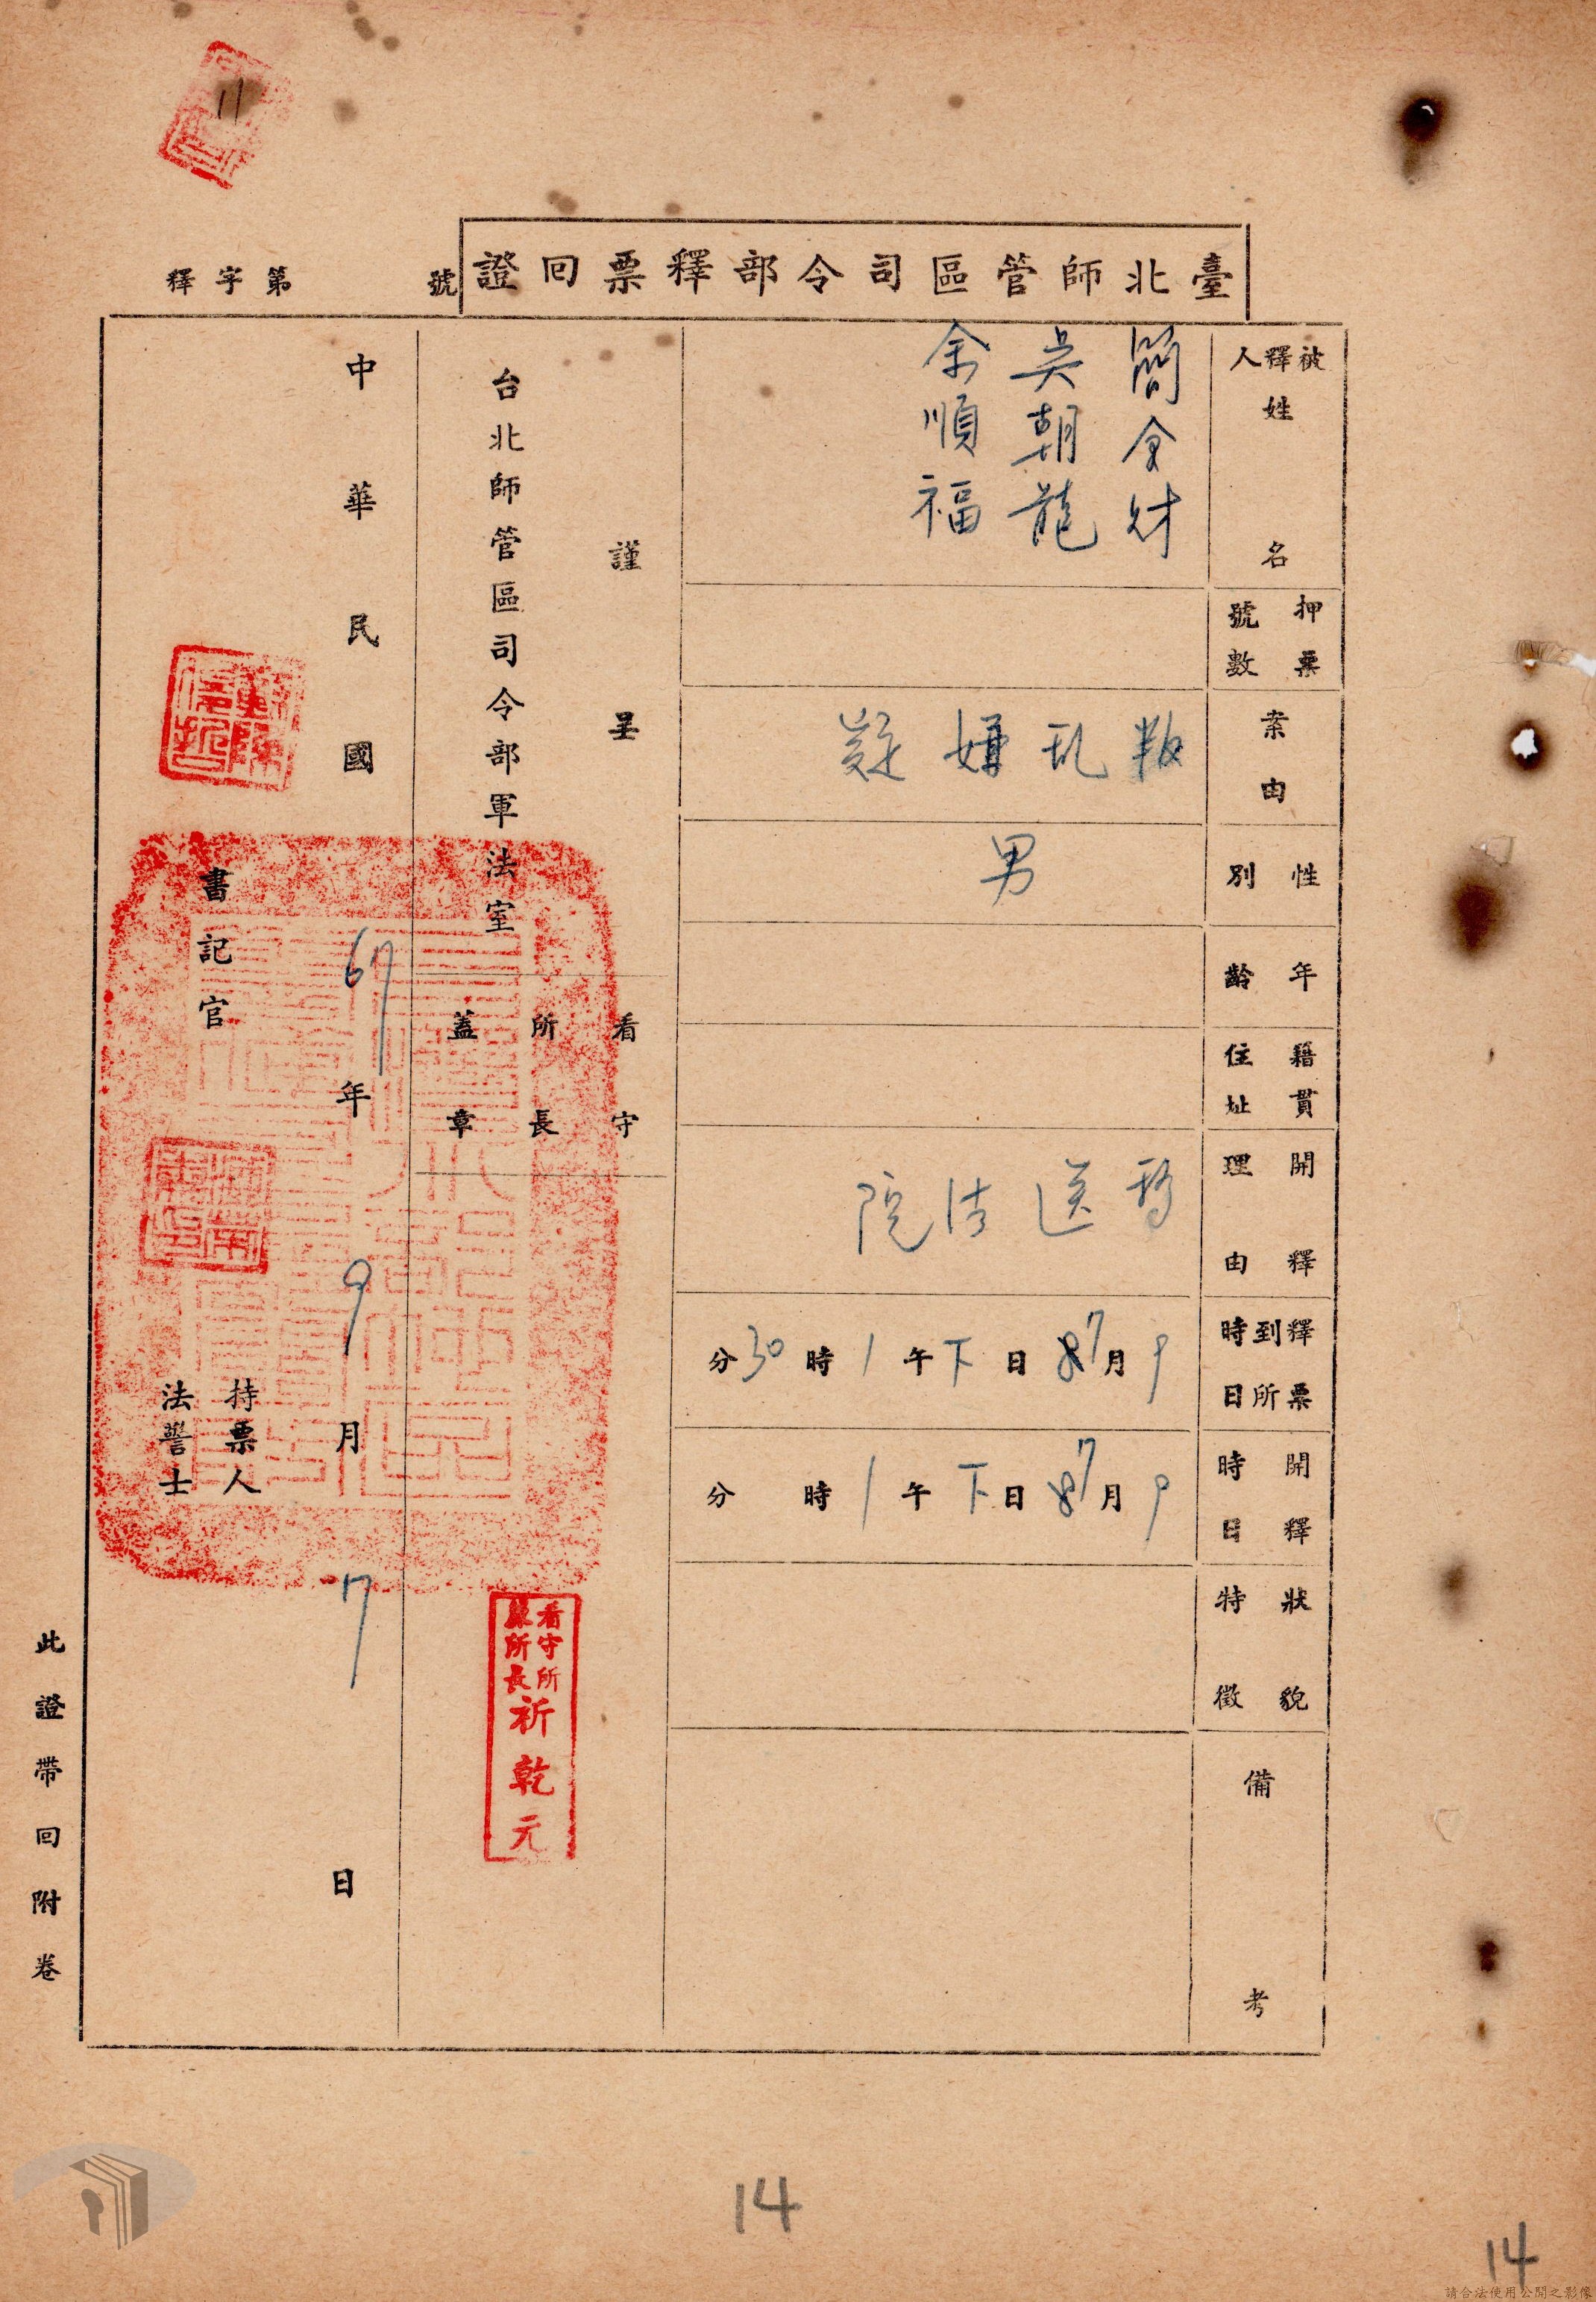 11
臺北師管區司令部釋票回證
釋字第　　號
被釋人姓名
簡金財
吳朝龍
余順福
押票號數
案由
叛乱嫌疑
性別
男
年齡
籍貫住址
開釋理由
移送法院
釋票到所時日
9月7日下午1時30分
開釋時日
9月7日下午1時　分
狀貌特徵
備考
謹呈
台北師管區司令部軍法室
看守所長蓋章
看守所
兼所長
祈乾元
中華民國67年9月7日
書記官
持票人
法警士
此證帶回附卷
14
14
請合法使用公開之影像